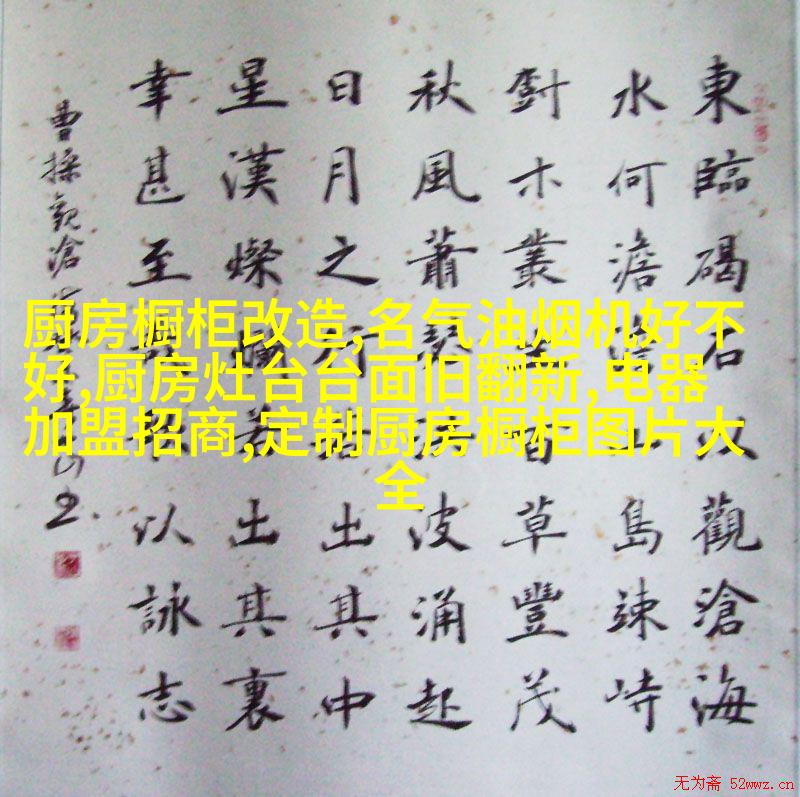 東臨碣石以觀滄海
水何澹澹島竦峙
木叢生百草豐茂
秋風蕭瑟波涌起
日月之行若出其中
星漢燦爛若出其裏
幸甚至哉歌以詠志
曹操觀滄
厨房橱柜改造,名气油烟机好不
好,厨房灶台台面旧翻新,电器
加盟招商,定制厨房橱柜图片大
全
无为斋 52wwz.cn